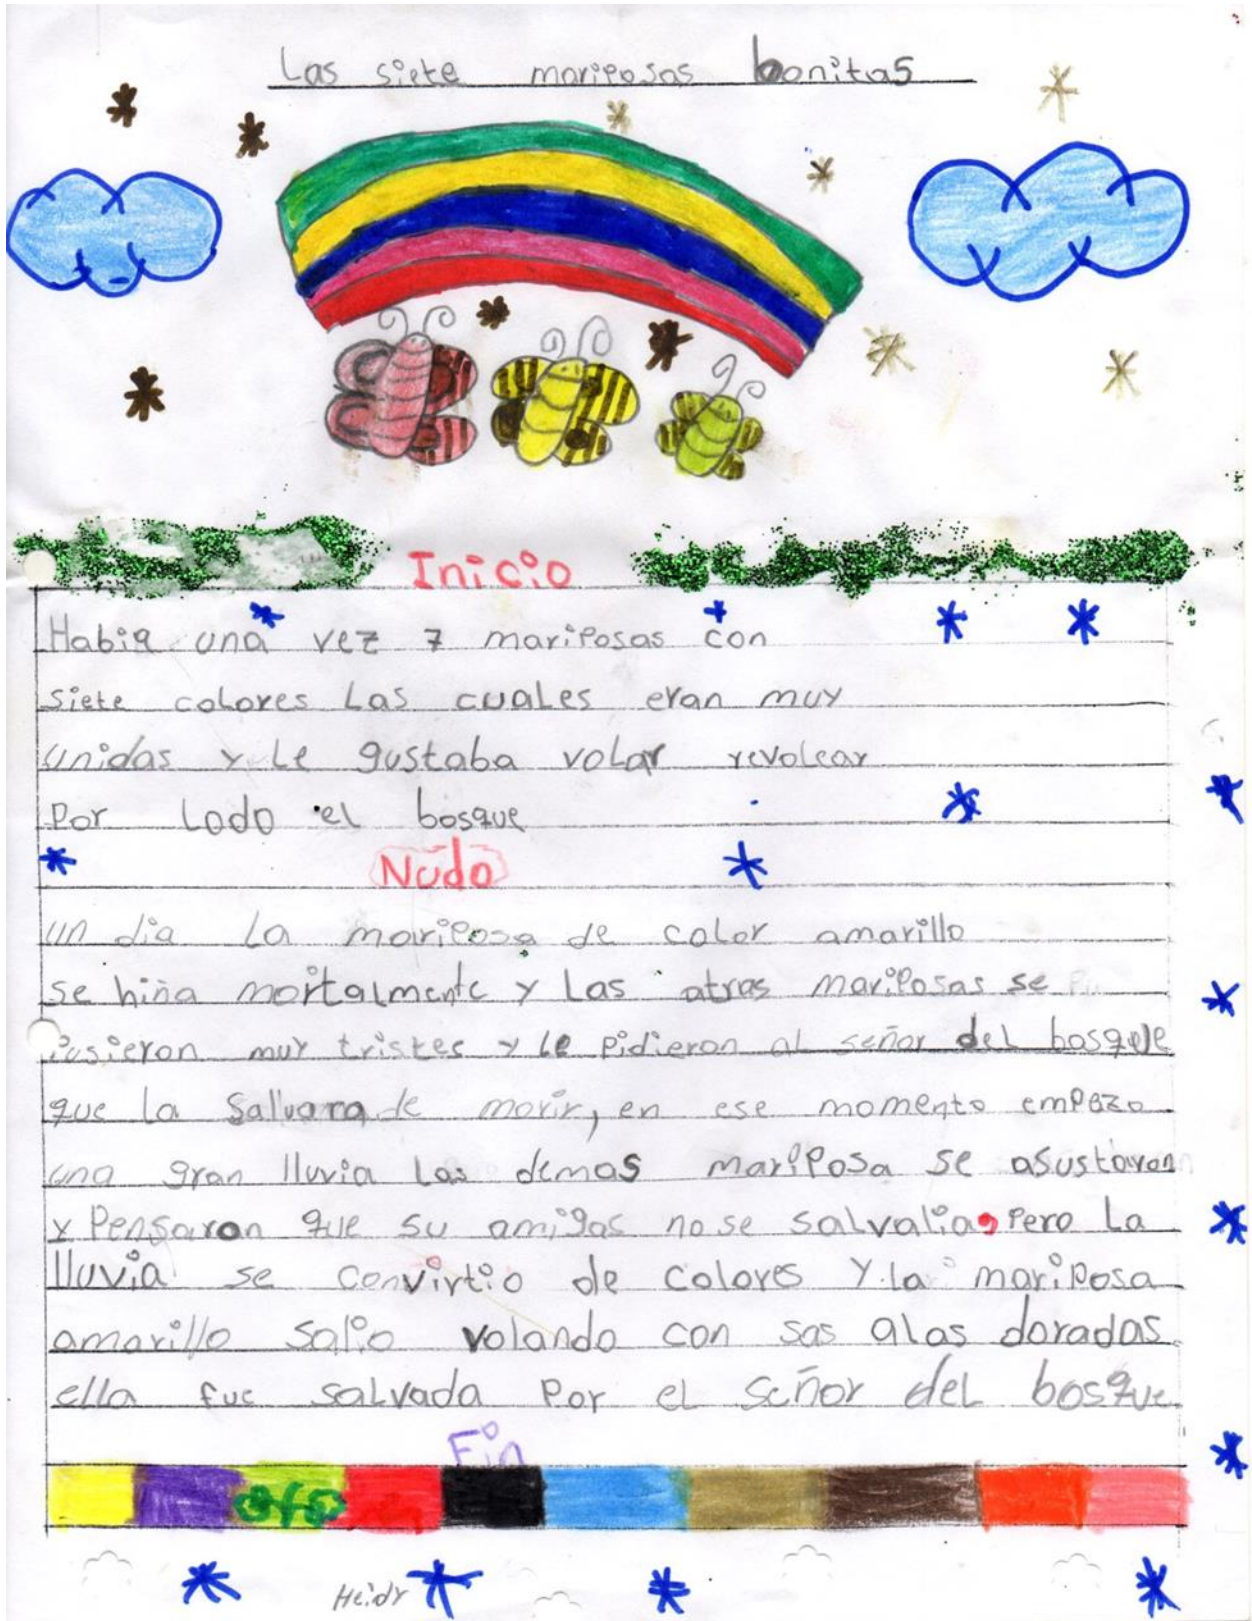 Las siete mariposas bonitas
Inicio
Habia una vez 7 mariposas con
siete colores Las cuales eran muy
unidas y Le gustaba volar revolear
Por Lodo el bosque
Nudo
un dia La mariposa de color amarillo
se hiña mortalmente y Las atras mariposas se
pusieron muy tristes y le Pidieron al señor del bosque
que La Salvara de morir, en ese momento empezo
una gran lluvia Las demas mariposa se asustaron
y Pensaron que su amigas no se salvalia, Pero La
lluvia se convirtio de colores Y la mariposa
amarillo salio volando con sas alas doradas
ella fue salvada Por el señor del bosque
Fin
Heidy